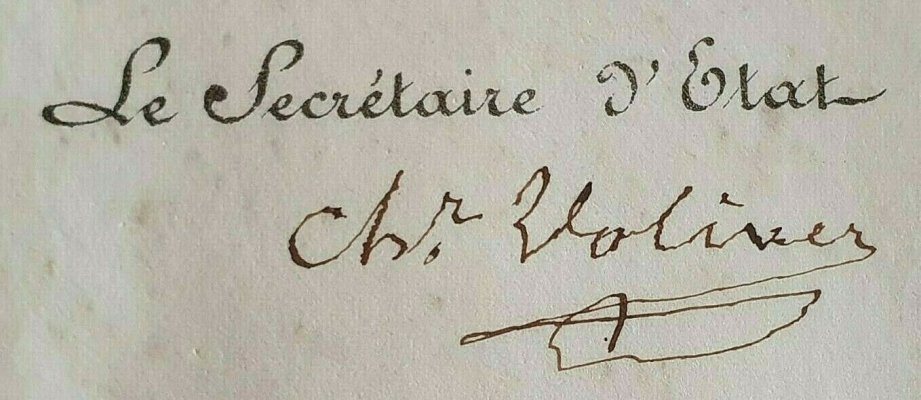 Le Secrétaire d'Etat
Chr. Voliver